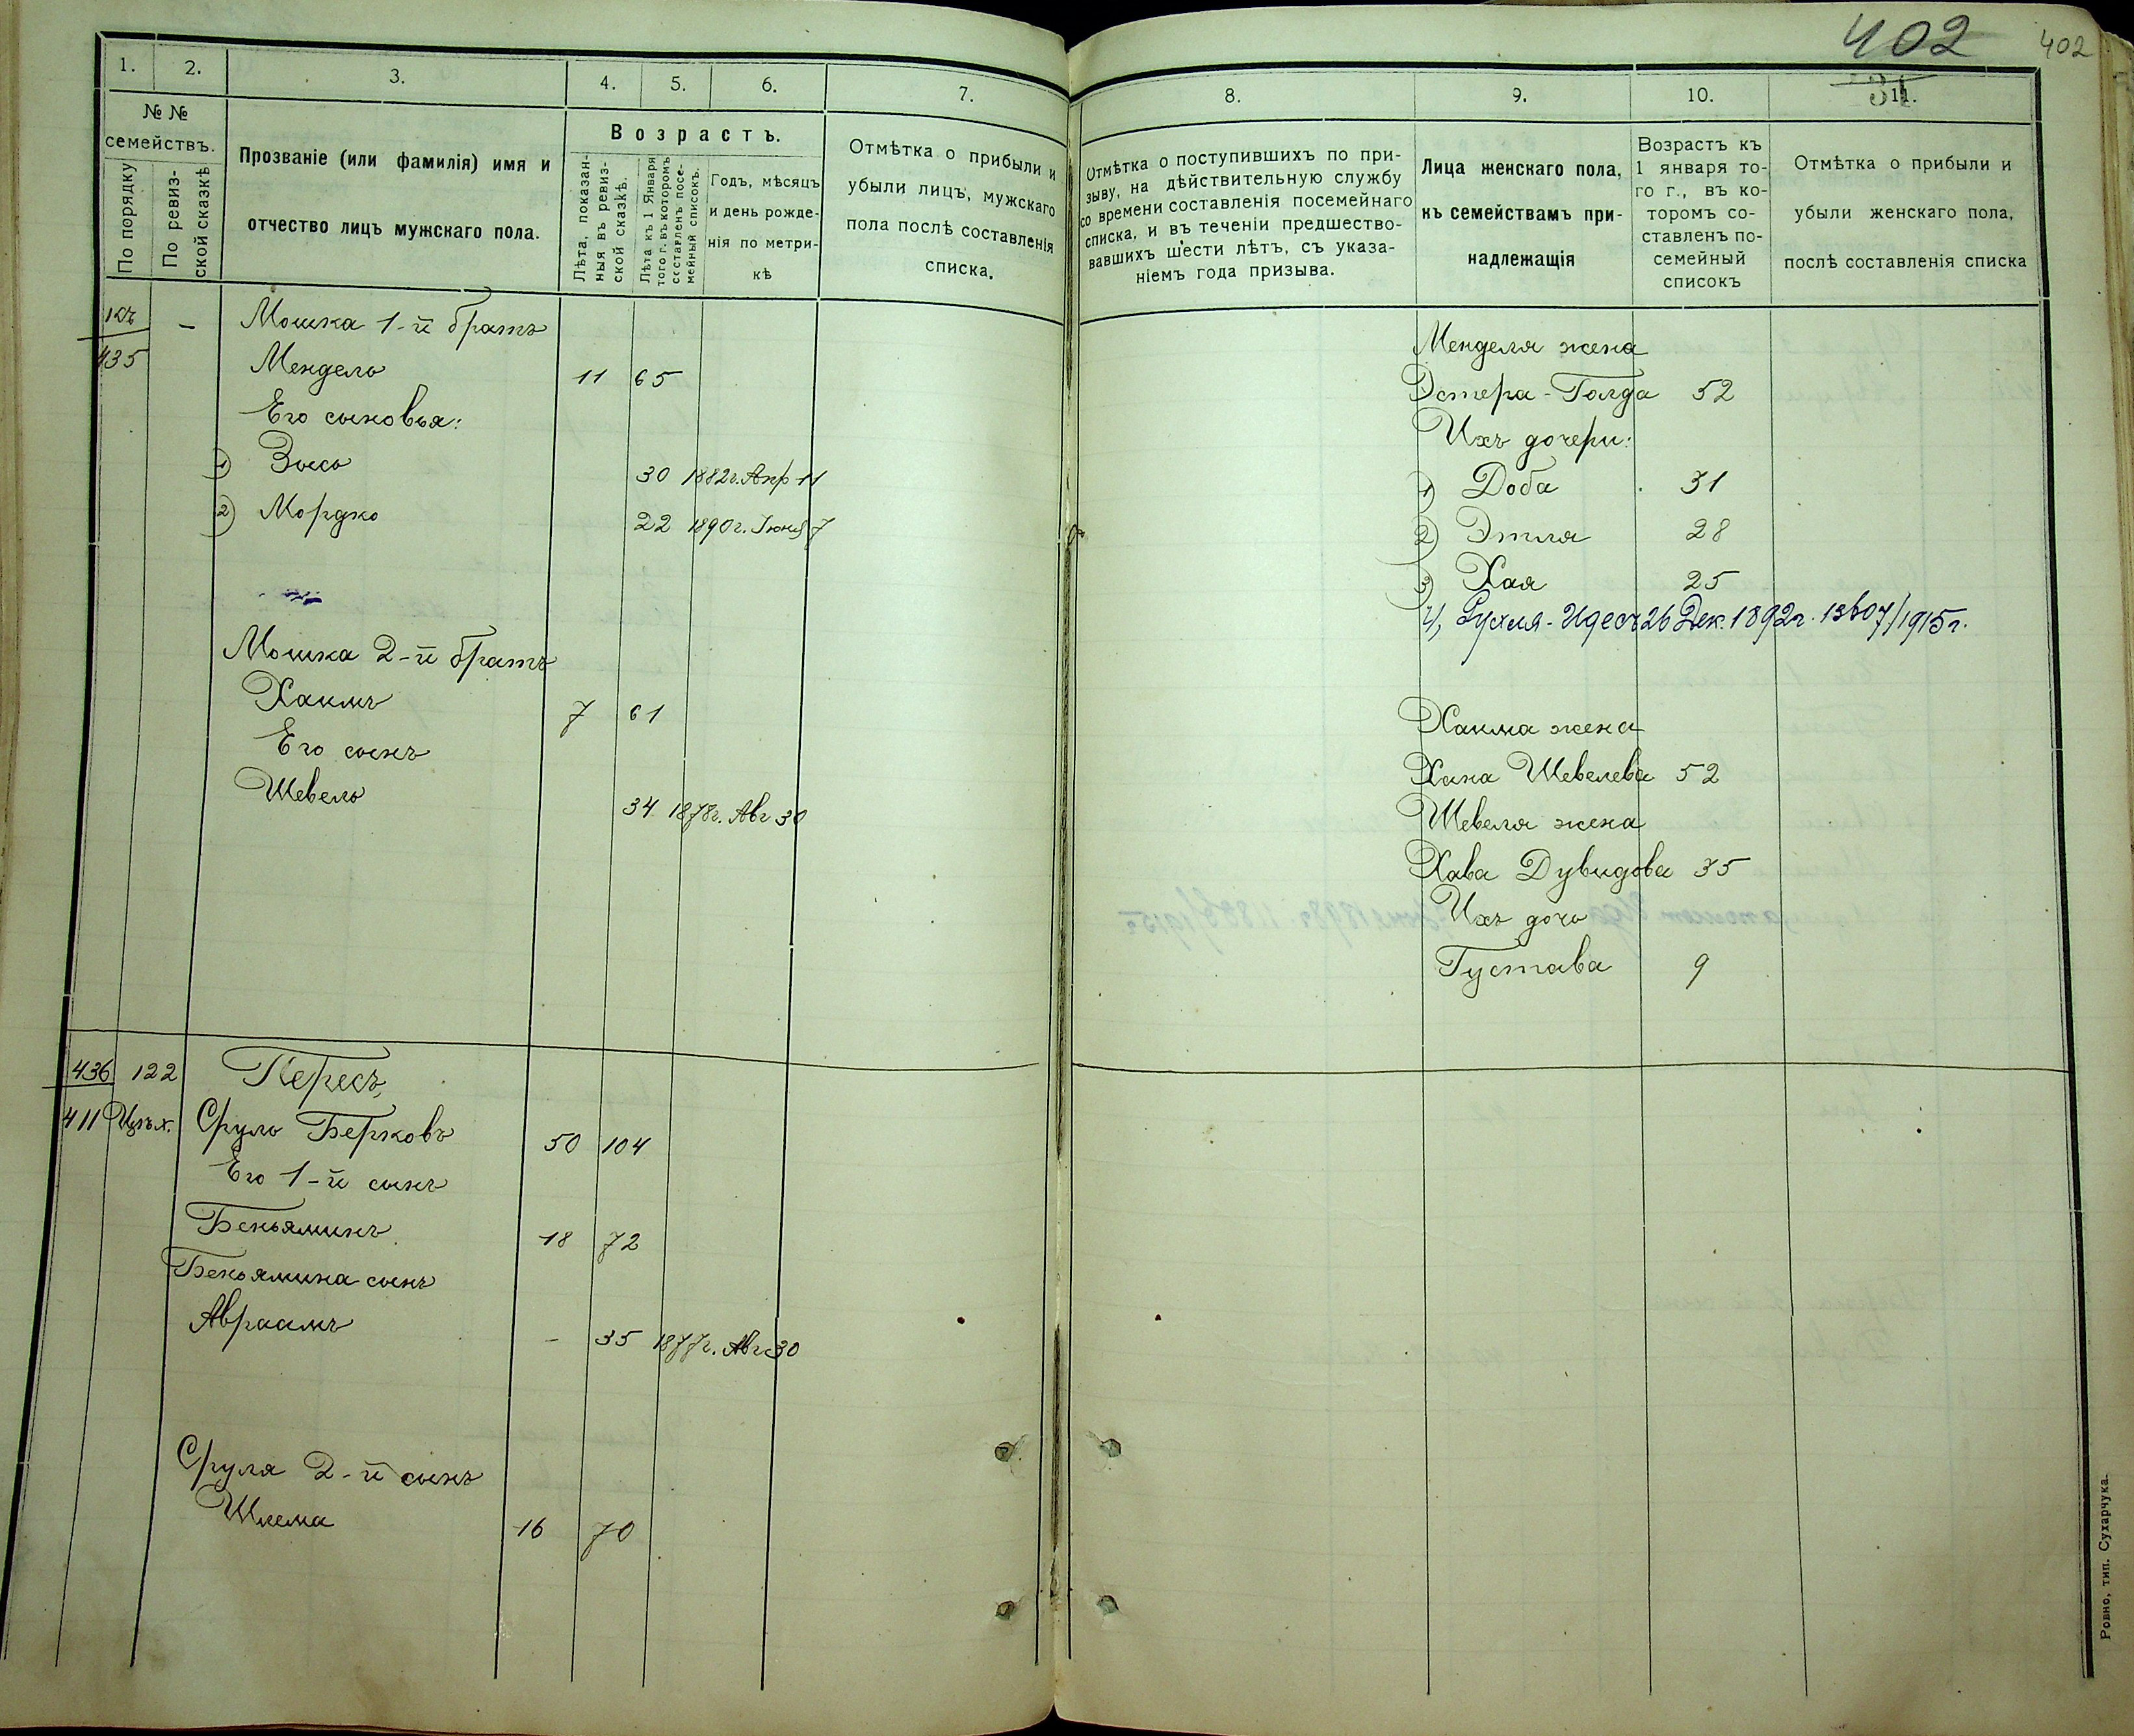 402
402
31
1.
2.
3.
4.
5.
6.
7.
№ №
семействъ.
По порядку
По ревиз-
ской сказкѣ
Прозваніе (или фамилія) имя и
отчество лицъ мужскаго пола.
Возрастъ.
Лѣта, показан-
ныя въ ревиз-
ской сказкѣ.
Лѣта къ 1 Января
того г. въ которомъ
составленъ посе-
мейный списокъ.
Годъ, мѣсяцъ
и день рожде-
нія по метри-
кѣ
Отмѣтка о прибыли и
убыли лицъ, мужскаго
пола послѣ составленія
списка.
Къ
435
—
Мошка 1-й братъ
Мендель 11 65
Его сыновья:
1) Зысь 30 1882г. Апр 11
2) Мордко 22 1890г. Іюня 7
Мошка 2-й братъ
Хаимъ 7 61
Его сынъ
Шевель 34 1878г. Авг 30
436 122 Пересъ,
411 Цѣх. Сруль Берковъ 50 104
Его 1-й сынъ
Беньяминъ 18 72
Беньямина сынъ
Авраамъ - 35 1877г. Авг 30
Сруля 2-й сынъ
Шлема 16 70
8.
9.
10.
11.
Отмѣтка о поступившихъ по при-
зыву, на дѣйствительную службу
со времени составленія посемейнаго
списка, и въ теченіи предшество-
вавшихъ шести лѣтъ, съ указа-
ніемъ года призыва.
Лица женскаго пола,
къ семействамъ при-
надлежащія
Возрастъ къ
1 января то-
го г., въ ко-
торомъ со-
ставленъ по-
семейный
списокъ
Отмѣтка о прибыли и
убыли женскаго пола,
послѣ составленія списка
Менделя жена
Эстера-Голда 52
Ихъ дочери:
1) Доба 31
2) Этля 28
3) Хая 25
4) Рухля-Идесъ 26 Дек. 1892г. 13607/1915г.
Хаима жена
Хана Шевелева 52
Шевеля жена
Хава Дувидова 35
Ихъ дочь
Густава 9
Ровно, тип. Сухарчука.